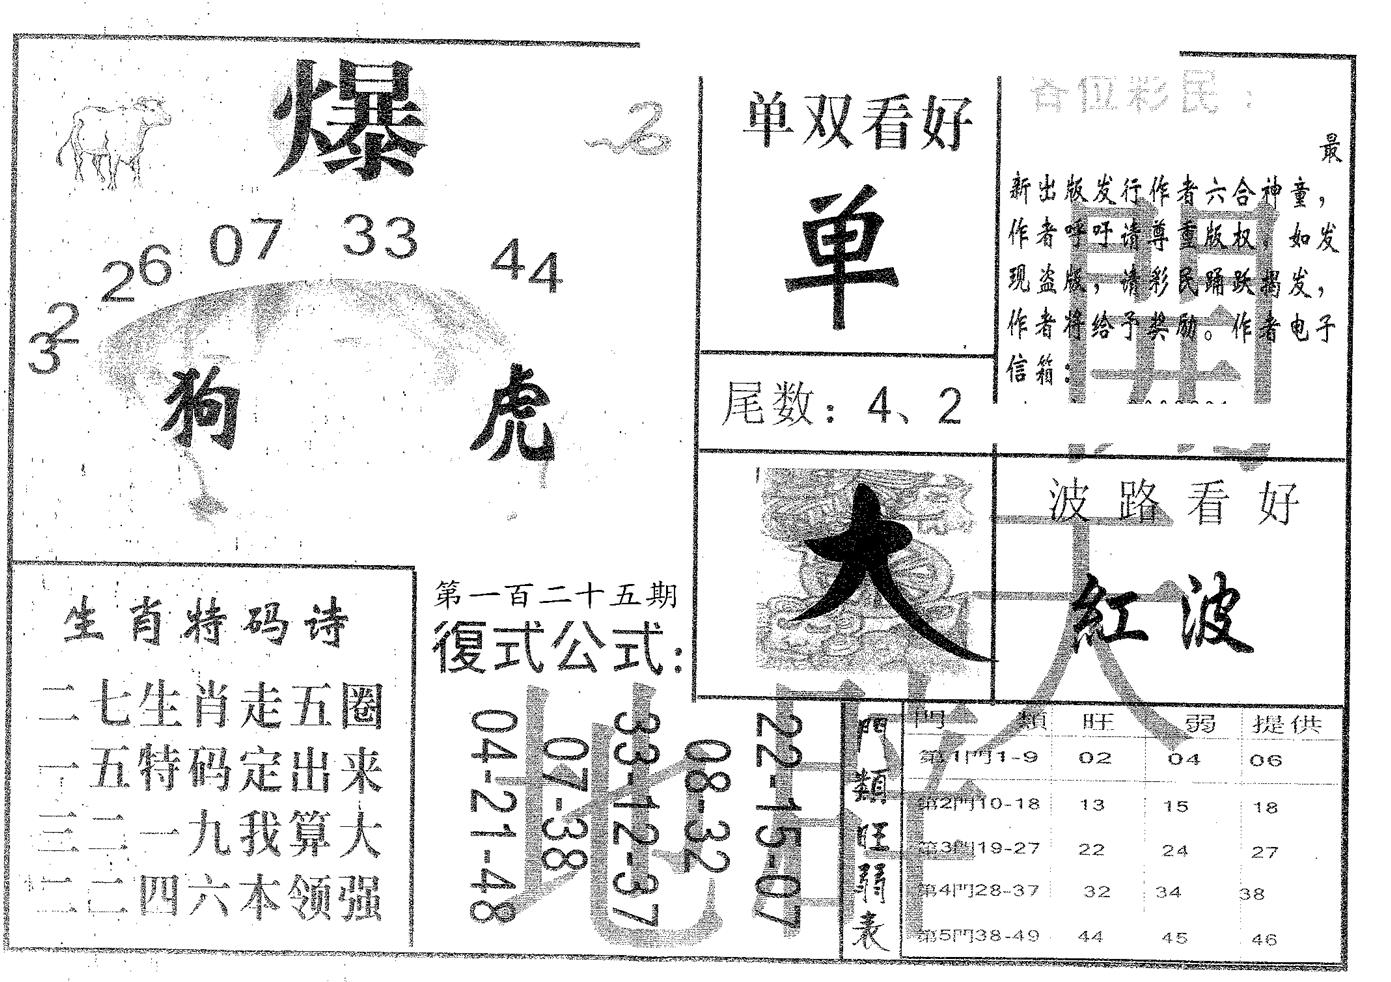 爆
2
32
26
07
33
44
狗 虎
单双看好
单
尾数：4、2
大
各位彩民：
最
新出版发行作者六合神童，
作者呼吁请尊重版权，如发
现盗版，请彩民踊跃揭发，
作者将给予奖励。作者电子
信箱：
波路看好
紅波
生肖特码诗
二七生肖走五圈
一五特码定出来
三二一九我算大
二二四六本领强
第一百二十五期
復式公式：
04-21-48
07-38
33-12-37
08-32
22-15-07
門類旺弱表
門 類 旺 弱 提供
第1門1-9 02 04 06
第2門10-18 13 15 18
第3門19-27 22 24 27
第4門28-37 32 34 38
第5門38-49 44 45 46